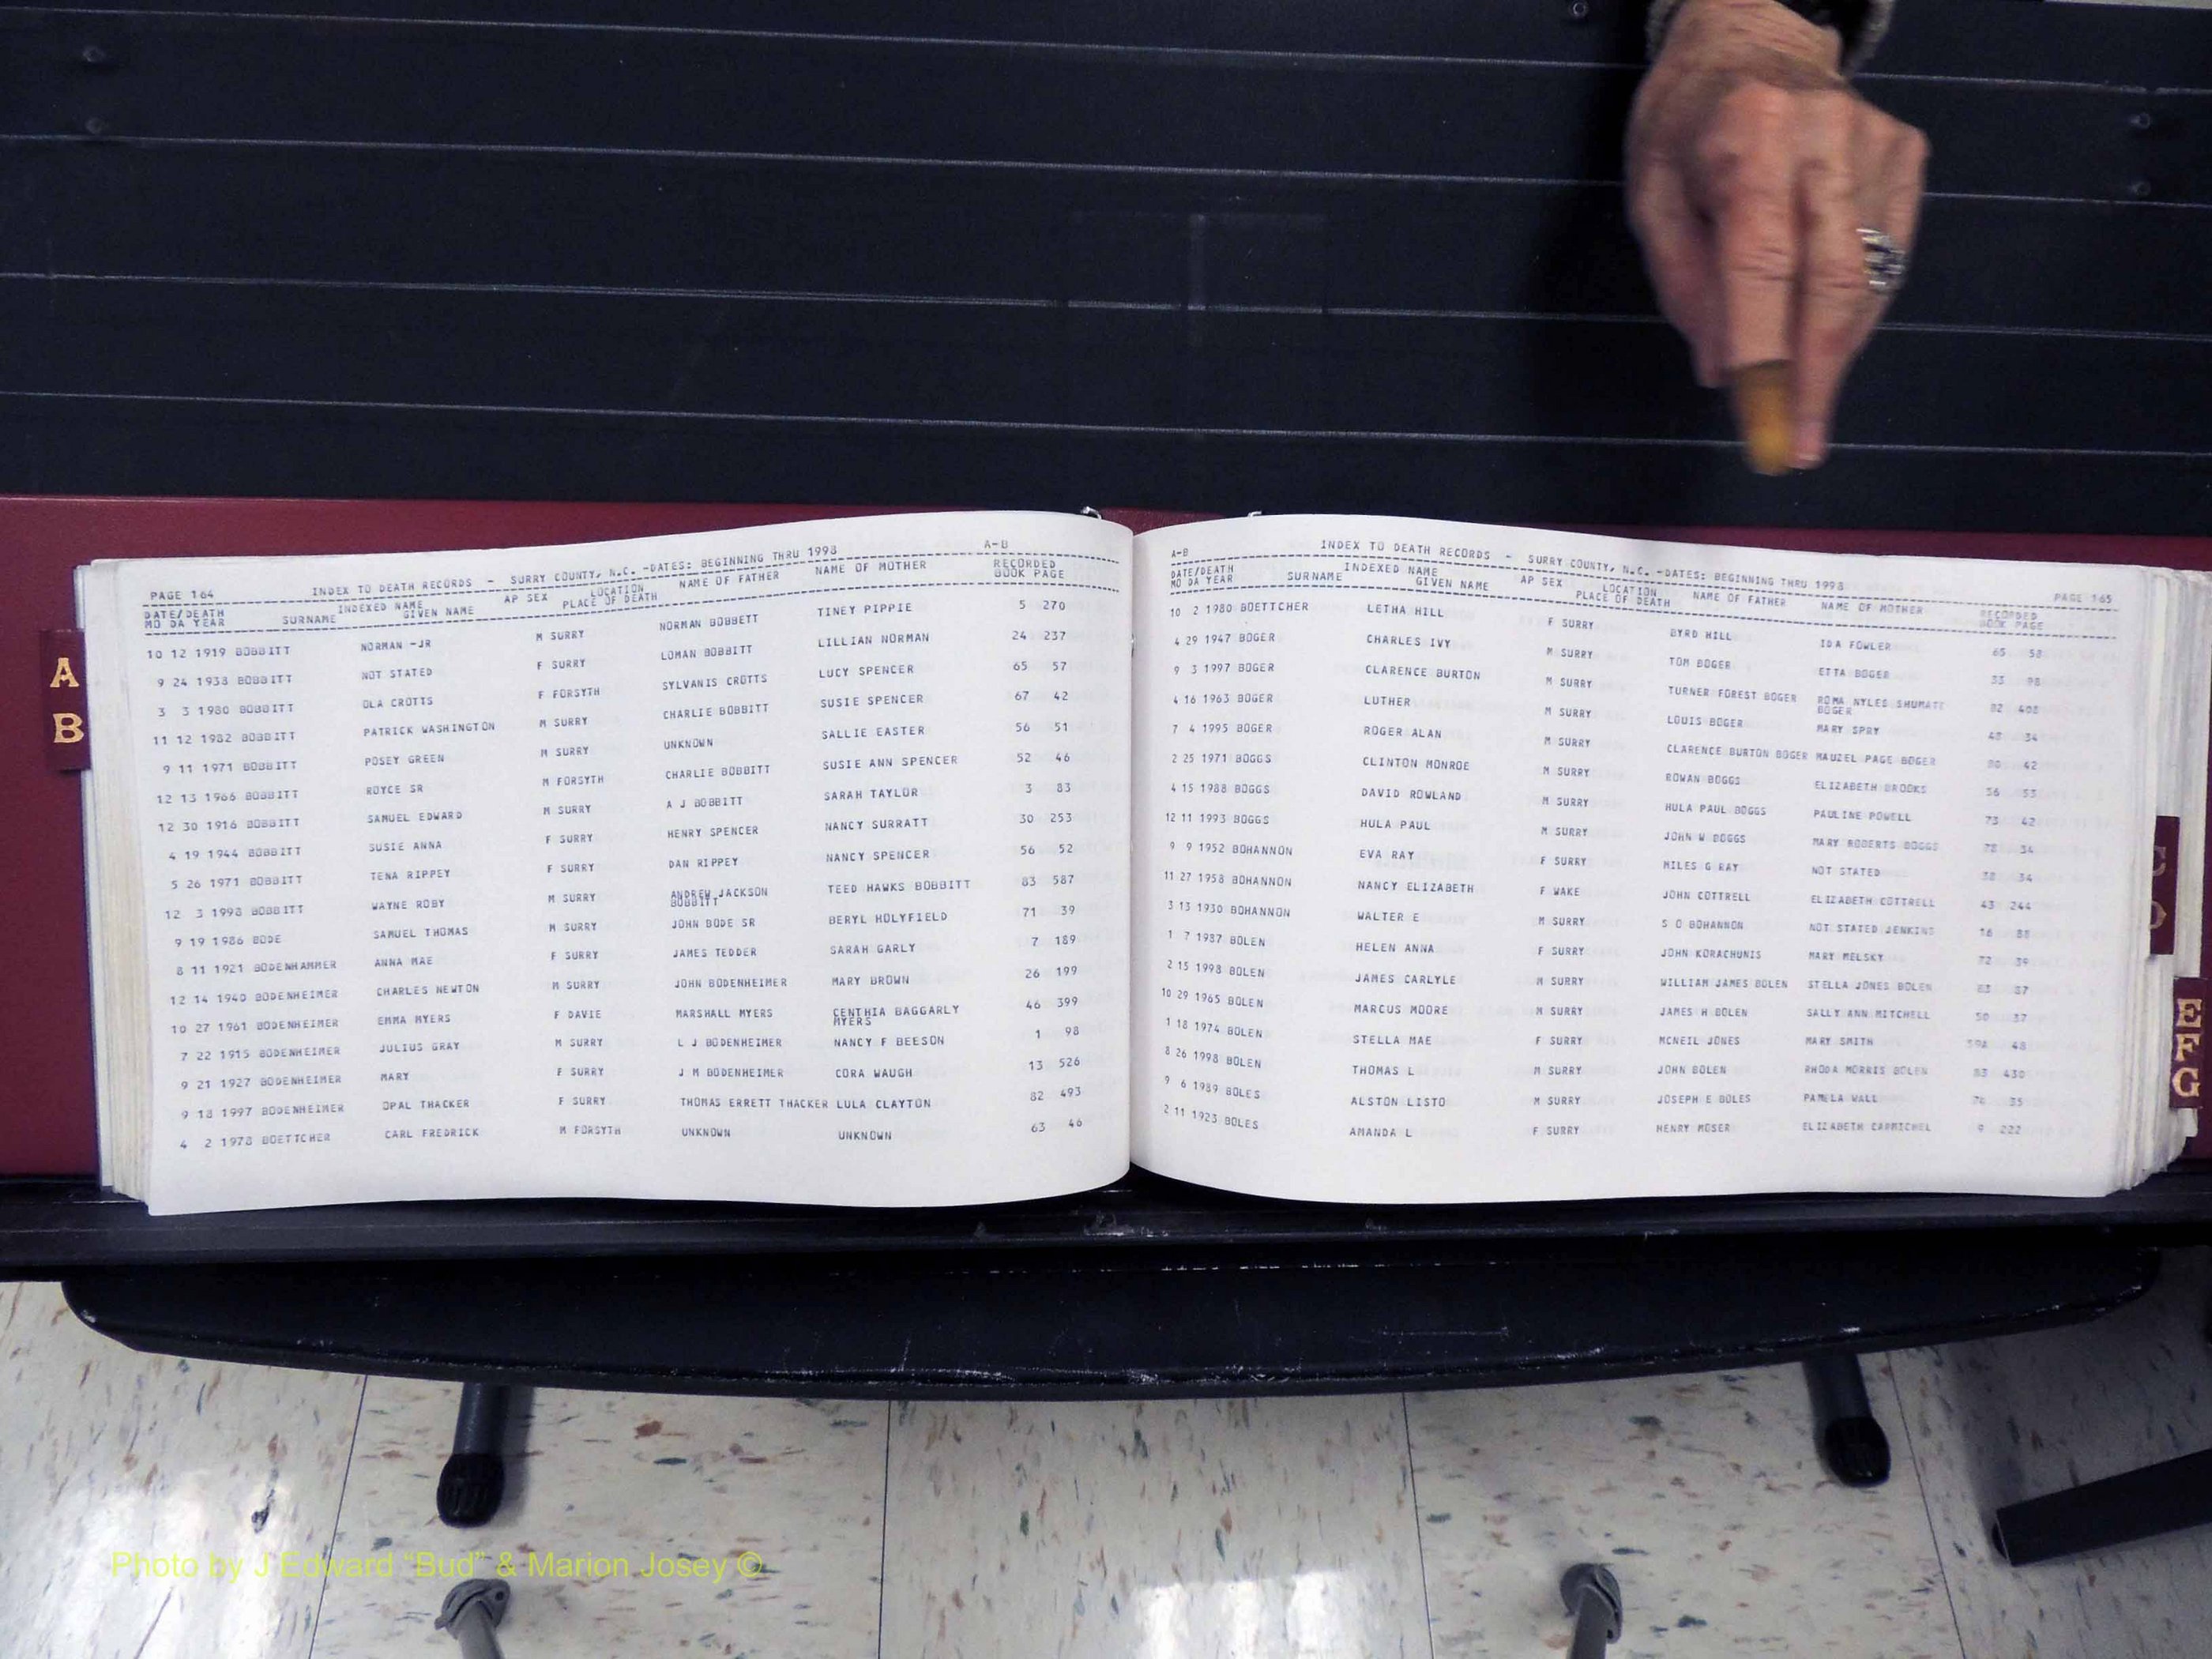 A
B
PAGE 164 INDEX TO DEATH RECORDS - SURRY COUNTY, N.C. -DATES: BEGINNING THRU 1998 A-B
DATE/DEATH INDEXED NAME LOCATION NAME OF FATHER NAME OF MOTHER RECORDED
MO DA YEAR SURNAME GIVEN NAME AP SEX PLACE OF DEATH BOOK PAGE
10 12 1919 BOBBITT NORMAN -JR M SURRY NORMAN BOBBETT TINEY PIPPIE 5 270
9 24 1938 BOBBITT NOT STATED F SURRY LOMAN BOBBITT LILLIAN NORMAN 24 237
3 3 1980 BOBBITT OLA CROTTS F FORSYTH SYLVANIS CROTTS LUCY SPENCER 65 57
11 12 1982 BOBBITT PATRICK WASHINGTON M SURRY CHARLIE BOBBITT SUSIE SPENCER 67 42
9 11 1971 BOBBITT POSEY GREEN M SURRY UNKNOWN SALLIE EASTER 56 51
12 13 1966 BOBBITT ROYCE SR M FORSYTH CHARLIE BOBBITT SUSIE ANN SPENCER 52 46
12 30 1916 BOBBITT SAMUEL EDWARD M SURRY A J BOBBITT SARAH TAYLOR 3 83
4 19 1944 BOBBITT SUSIE ANNA F SURRY HENRY SPENCER NANCY SURRATT 30 253
5 26 1971 BOBBITT TENA RIPPEY F SURRY DAN RIPPEY NANCY SPENCER 56 52
12 3 1998 BOBBITT WAYNE ROBY M SURRY ANDREW JACKSON TEED HAWKS BOBBITT 83 587
BOBBITT
9 19 1986 BODE SAMUEL THOMAS M SURRY JOHN BODE SR BERYL HOLYFIELD 71 39
8 11 1921 BODENHAMMER ANNA MAE F SURRY JAMES TEDDER SARAH GARLY 7 189
12 14 1940 BODENHEIMER CHARLES NEWTON M SURRY JOHN BODENHEIMER MARY BROWN 26 199
10 27 1961 BODENHEIMER EMMA MYERS F DAVIE MARSHALL MYERS CENTHIA BAGGARLY 46 399
MYERS
7 22 1915 BODENHEIMER JULIUS GRAY M SURRY L J BODENHEIMER NANCY F BEESON 1 98
9 21 1927 BODENHEIMER MARY F SURRY J M BODENHEIMER CORA WAUGH 13 526
9 18 1997 BODENHEIMER OPAL THACKER F SURRY THOMAS ERRETT THACKER LULA CLAYTON 82 493
4 2 1978 BOETTCHER CARL FREDRICK M FORSYTH UNKNOWN UNKNOWN 63 46
A-B INDEX TO DEATH RECORDS - SURRY COUNTY, N.C. -DATES: BEGINNING THRU 1998 PAGE 165
DATE/DEATH INDEXED NAME LOCATION NAME OF FATHER NAME OF MOTHER RECORDED
MO DA YEAR SURNAME GIVEN NAME AP SEX PLACE OF DEATH BOOK PAGE
10 2 1980 BOETTCHER LETHA HILL F SURRY BYRD HILL IDA FOWLER 65 58
4 29 1947 BOGER CHARLES IVY M SURRY TOM BOGER ETTA BOGER 33 98
9 3 1997 BOGER CLARENCE BURTON M SURRY TURNER FOREST BOGER ROMA NYLES SHUMATE 82 408
BOGER
4 16 1963 BOGER LUTHER M SURRY LOUIS BOGER MARY SPRY 48 34
7 4 1995 BOGER ROGER ALAN M SURRY CLARENCE BURTON BOGER MAUZEL PAGE BOGER 80 42
2 25 1971 BOGGS CLINTON MONROE M SURRY ROWAN BOGGS ELIZABETH BROOKS 56 53
4 15 1988 BOGGS DAVID ROWLAND M SURRY HULA PAUL BOGGS PAULINE POWELL 73 42
12 11 1993 BOGGS HULA PAUL M SURRY JOHN W BOGGS MARY ROBERTS BOGGS 78 34
9 9 1952 BOHANNON EVA RAY F SURRY MILES G RAY NOT STATED 38 54
11 27 1958 BOHANNON NANCY ELIZABETH F WAKE JOHN COTTRELL ELIZABETH COTTRELL 43 244
3 13 1930 BOHANNON WALTER E M SURRY S O BOHANNON NOT STATED JENKINS 16 88
1 7 1987 BOLEN HELEN ANNA F SURRY JOHN KORACHUNIS MARY MELSKY 72 39
2 15 1998 BOLEN JAMES CARLYLE M SURRY WILLIAM JAMES BOLEN STELLA JONES BOLEN 83 87
10 29 1965 BOLEN MARCUS MOORE M SURRY JAMES H BOLEN SALLY ANN MITCHELL 50 37
1 18 1974 BOLEN STELLA MAE F SURRY MCNEIL JONES MARY SMITH 59A 48
8 26 1998 BOLEN THOMAS L M SURRY JOHN BOLEN RHODA MORRIS BOLEN 83 430
9 6 1989 BOLES ALSTON LISTO M SURRY JOSEPH E BOLES PAMELA WALL 74 35
2 11 1923 BOLES AMANDA L F SURRY HENRY MOSER ELIZABETH CARMICHEL 9 222
C
D
E
F
G
Photo by J Edward "Bud" & Marion Josey ©